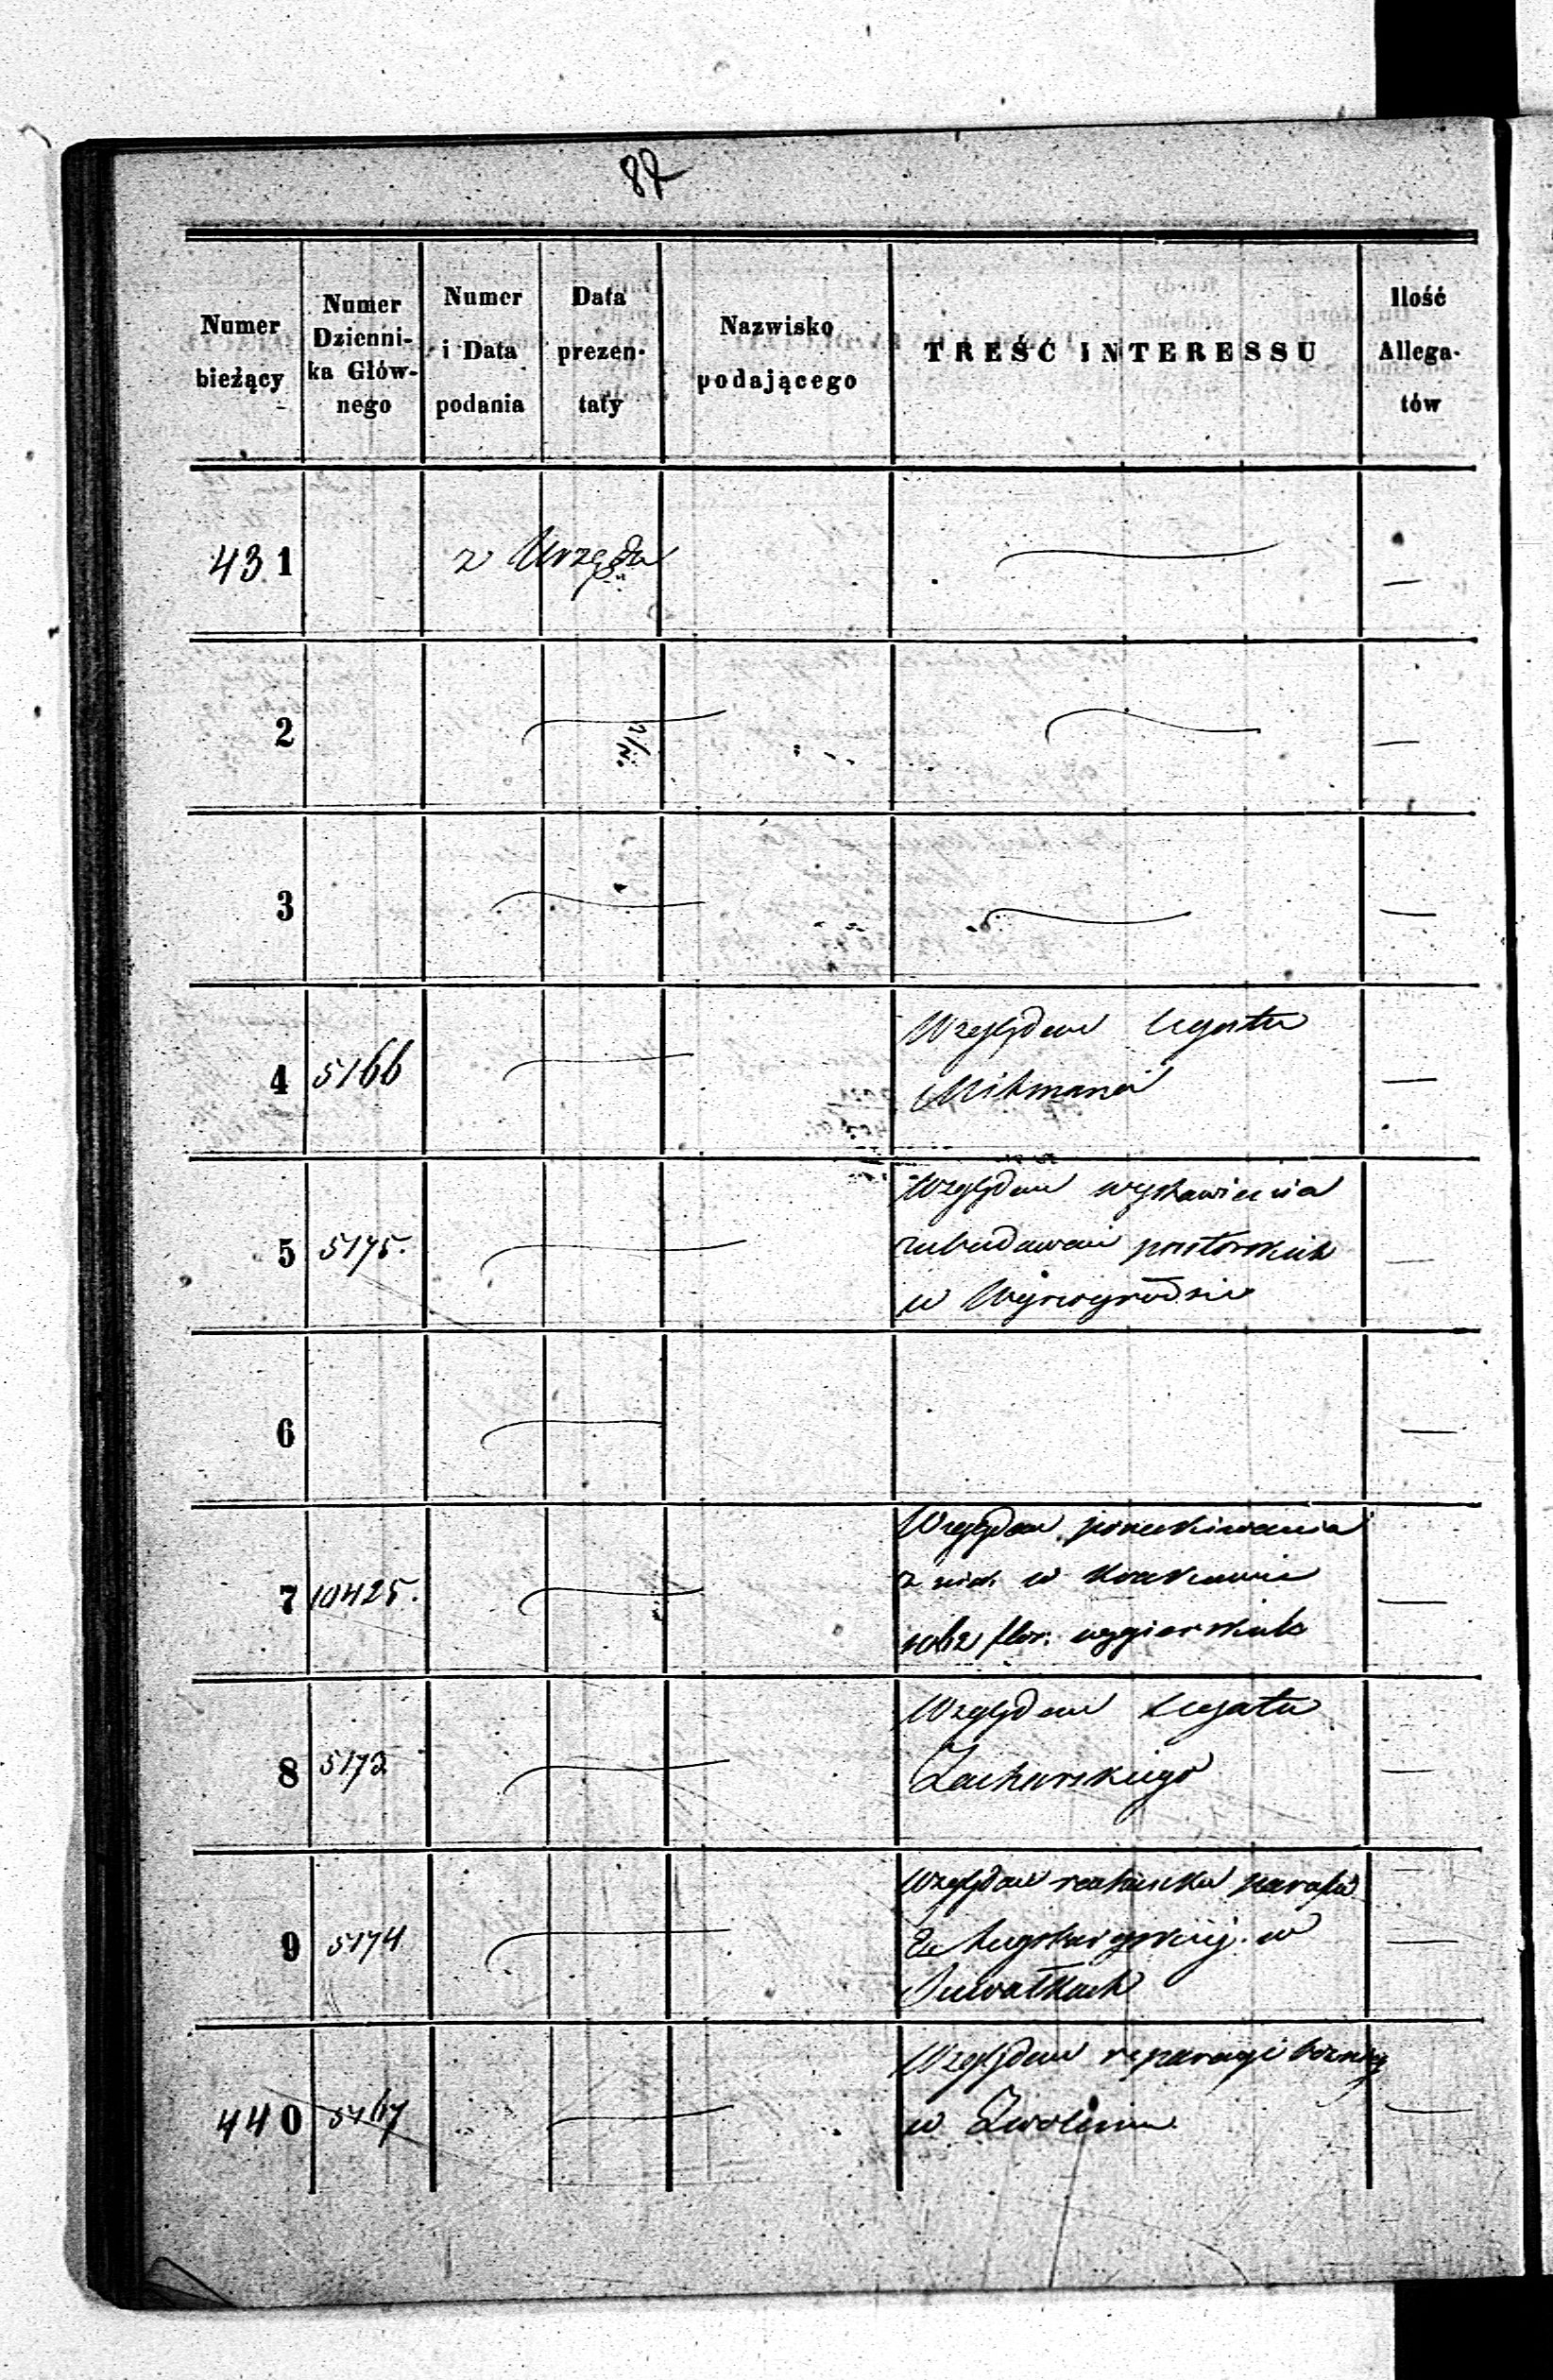 87
Numer bieżący
Numer Dzienni-ka Głów-nego
Numer i Data podania
Data prezen-taty
Nazwisko podającego
TREŚĆ INTERESSU
Ilość Allega-tów
431 z Urzędu —
2 —
3 —
4 5166 Względem Legatu —
Mikmana
5 5175. Względem wystawienia —
zabudowań pastorskich
w Wyszogrodzie
6 —
7 10425. Względem poszukiwania —
z nich w Krakowie
flor. węgierskich
8 5172 Względem Legatu —
Zacherskiego
9 5174 Względem rachunku parafii —
Ewangelickiej w
Suwałkach
440 5167 Względem reparacyi bożnicy —
w Zwoleniu